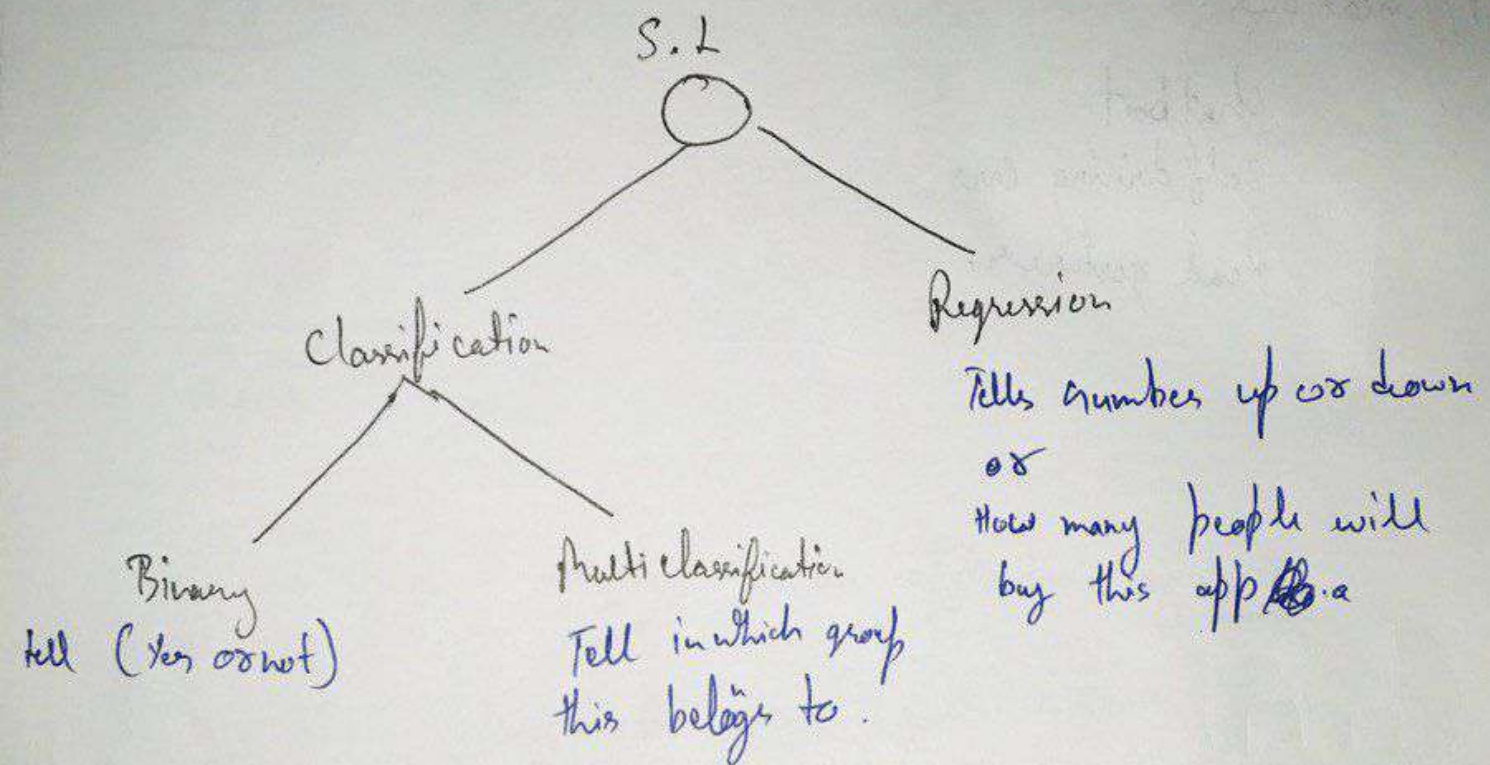 S.L
Classification
Regression
Tells number up or down
or
How many people will
buy this app
Binary
tell (Yes or not)
Multi classification
Tell in which group
this belogs to.